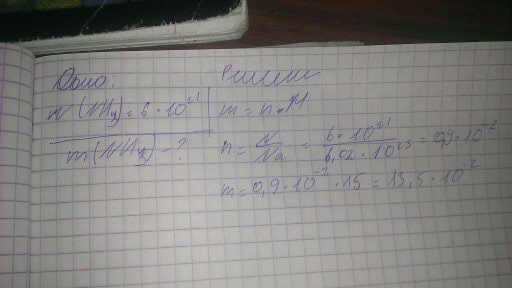 Дано:
N(NH₃) = 6 · 10²¹
m(NH₃) - ?
Решение
m = n · M
n = N/Na = 6 · 10²¹/6,02 · 10²³ = 0,9 · 10⁻²
m = 0,9 · 10⁻² · 15 = 13,5 · 10⁻²